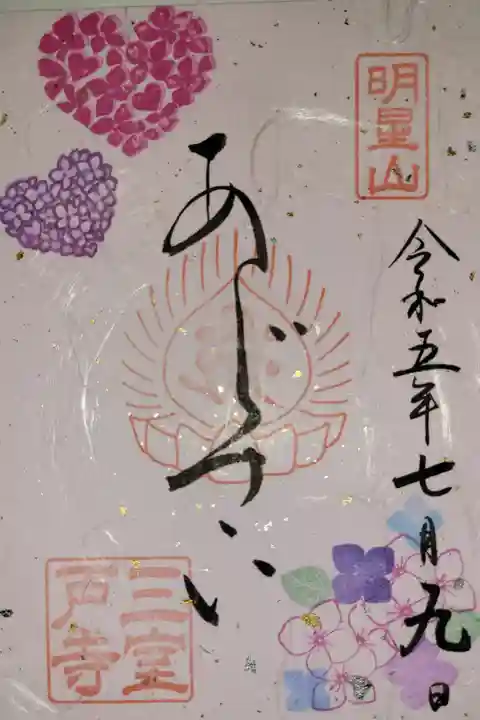 明星山
令和五年七月九日
あじさい
三室
戸寺